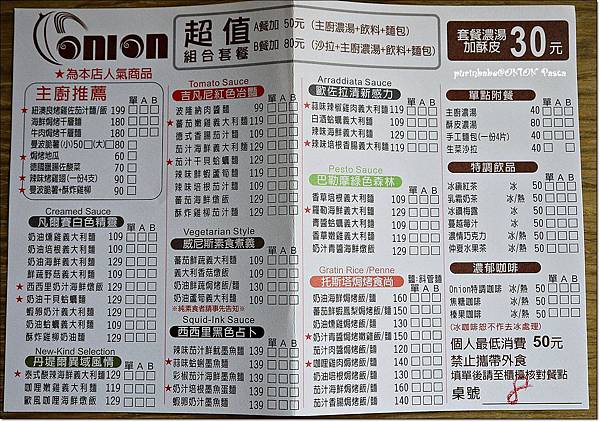 ONION
★為本店人氣商品
超值
組合套餐
A餐加 50元 (主廚濃湯+飲料+麵包)
B餐加 80元 (沙拉+主廚濃湯+飲料+麵包)
套餐濃湯
加酥皮 30元
purinbaba@ONION Pasca
主廚推薦
單 A B
★紐澳良烤雞佐茄汁麵/飯 199
海鮮焗烤千層麵 180
牛肉焗烤千層麵 180
曼波脆薯(小)50(大) 80
★焗烤地瓜 60
德國臘腸佐酸菜 90
★辣味烤雞翅(一份4支) 90
★曼波脆薯+酥炸雞柳 90
Creamed Sauce
凡爾賽白色精靈
單 A B
奶油燻雞義大利麵 109
奶油培根義大利麵 109
奶油海鮮義大利麵 129
鮮蔬野菇義大利麵 109
★西西里奶汁海鮮燉飯 129
★奶油干貝蛤蠣麵 129
蝦卵奶汁義大利麵 109
奶油蛤蠣義大利麵 119
酥炸雞柳奶油麵 129
New-Kind Selection
丹堤爾異域風情
單 A B
★泰式酸辣海鮮義大利麵 129
咖哩嫩雞義大利麵 119
歐風咖哩海鮮燉飯 129
Tomato Sauce
吉凡尼紅色冶豔
單 A B
波隆納肉醬麵 109
蕃茄嫩雞義大利麵 119
德式香腸茄汁麵 109
茄汁海鮮義大利麵 129
★茄汁干貝蛤蠣麵 129
辣味鮮蝦蘆筍麵 129
辣味培根茄汁麵 109
蕃茄海鮮燉飯 129
酥炸雞柳茄汁麵 129
Vegetarian Style
威尼斯素食煮義
單 A B
蕃茄鮮蔬義大利麵 109
義大利香菇燉飯 109
奶油鮮蔬焗烤飯/麵 119
奶油蘆筍義大利麵 109
※純素食者請事先告知※
Squid-Ink Sauce
西西里黑色占卜
單 A B
辣味茄汁海鮮魷墨魚麵 139
★蒜味蛤蜊墨魚麵 139
彩椒茄汁海鮮墨魚麵 139
★奶汁培根墨魚蛋麵 139
蝦卵奶汁墨魚麵 139
Arraddiata Sauce
歐佐拉清新感力
單 A B
★蒜味辣椒雞肉義大利麵 119
白酒蛤蠣義大利麵 119
辣味海鮮義大利麵 129
★辣味培根義大利麵 119
Pesto Sauce
巴勒摩綠色森林
單 A B
香草培根義大利麵 119
★羅勒海鮮義大利麵 129
青醬蛤蠣義大利麵 129
香草嫩雞義大利麵 119
奶汁青醬海鮮燉飯 129
Gratin Rice /Penne
麵:斜管麵
托斯塔焗烤食尚
單 A B
奶油海鮮焗烤飯/麵 160
蕃茄鮮蝦鳳梨焗烤飯/麵 150
奶油燻雞焗烤飯/麵 140
★奶汁青醬焗烤飯/麵 150
茄汁肉醬焗烤飯/麵 140
★咖哩雞肉焗烤飯/麵 150
奶油培根焗烤飯/麵 140
茄汁海鮮焗烤飯/麵 160
茄汁香腸焗烤飯/麵 140
單點附餐
單 A B
主廚濃湯 40
酥皮濃湯 80
手工麵包(一份4片) 40
生菜沙拉 40
特調飲品
單 A B
冰釀紅茶 冰 50
乳霜奶茶 冰/熱 50
冰鑽梅露 冰 50
蔓越莓汁 冰 50
濃情巧克力 冰/熱 50
仲夏水果茶 冰/熱 50
濃郁咖啡
單 A B
Onion特調咖啡 冰/熱 50
焦糖咖啡 冰/熱 50
榛果咖啡 冰/熱 50
(冰咖啡恕不作去冰處理)
個人最低消費 50元
禁止攜帶外食
填單後請至櫃檯核對餐點
桌號 8